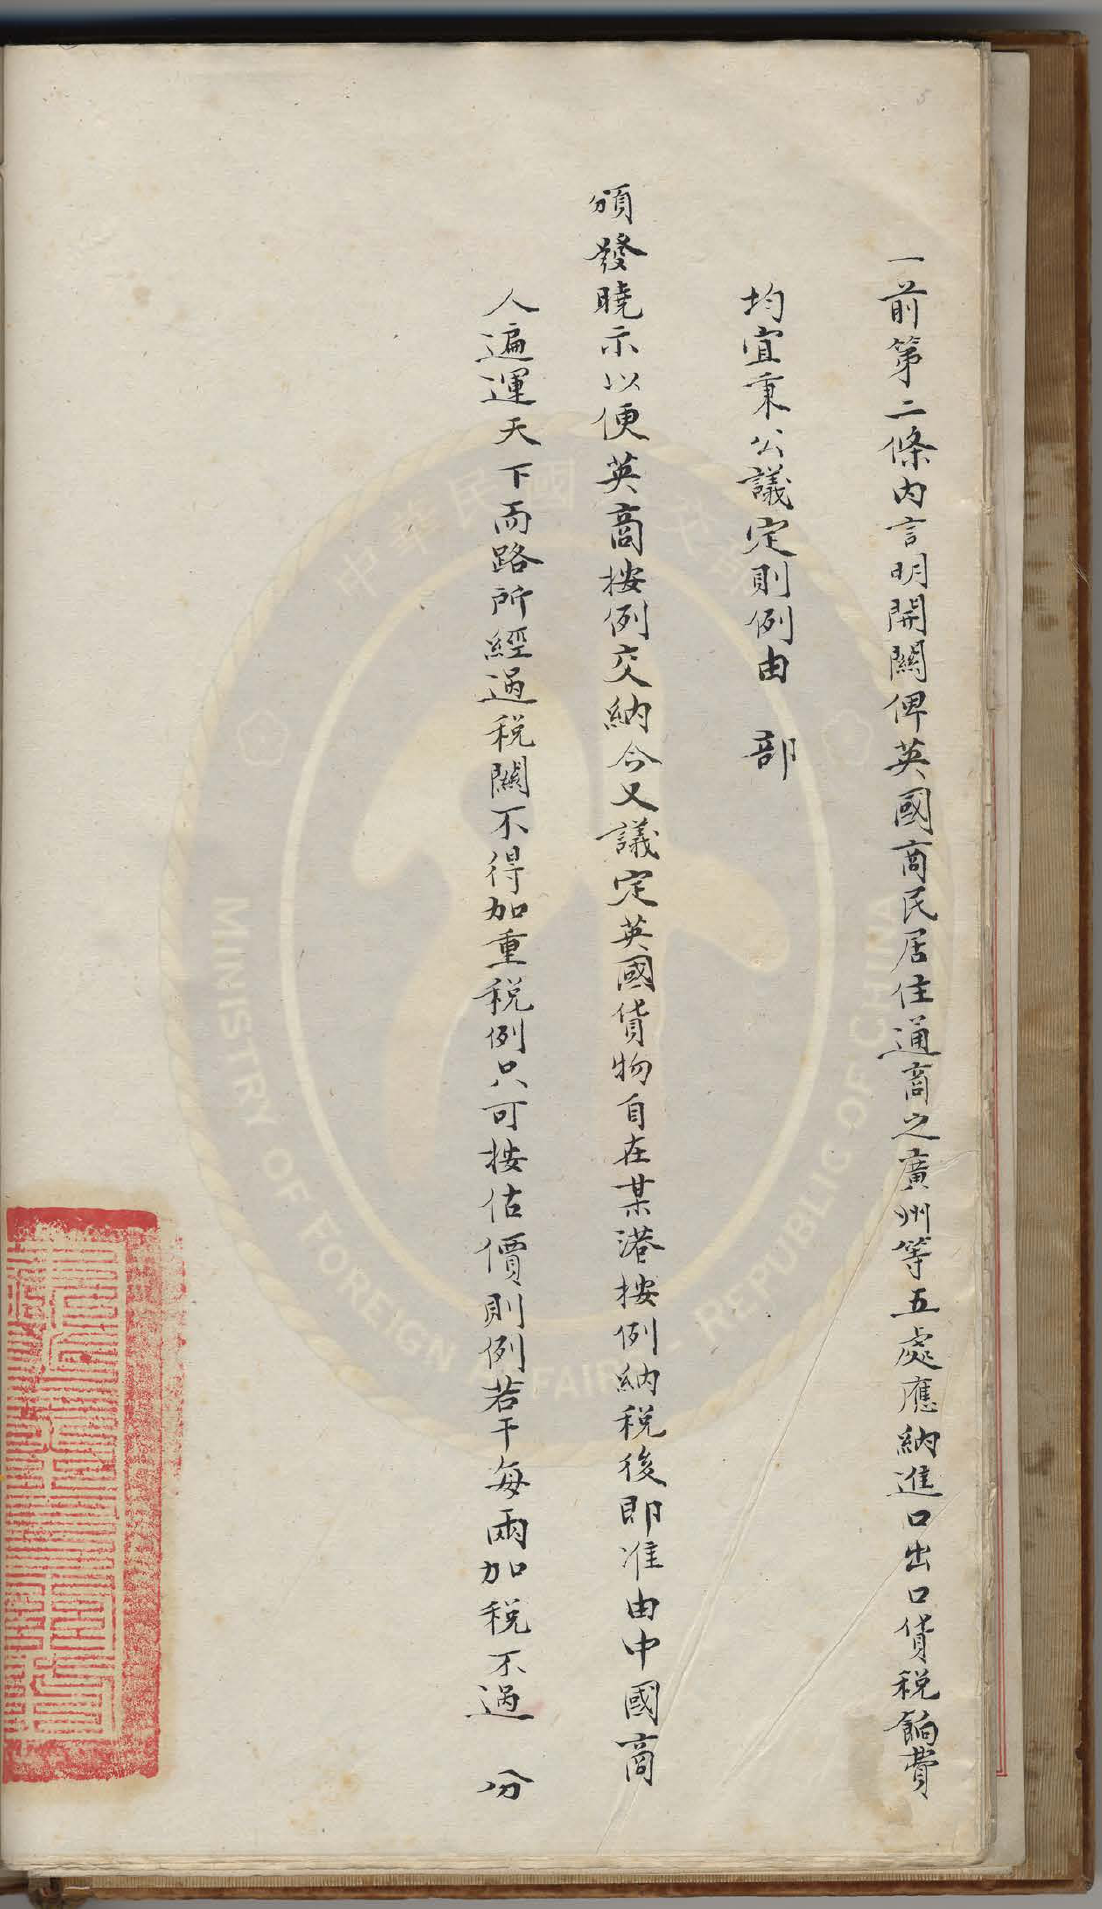 一前第二條內言明開關俾英國商民居住通商之廣州等五處應納進口出口貨稅餉費
均宜秉公議定則例由 部
頒發曉示以便英商按例交納今又議定英國貨物自在某港按例納稅後即准由中國商
人遍運天下而路所經過稅關不得加重稅例只可按估價則例若干每兩加稅不過 分
中華民國
MINISTRY OF FOREIGN AFFAIRS REPUBLIC OF CHINA
5